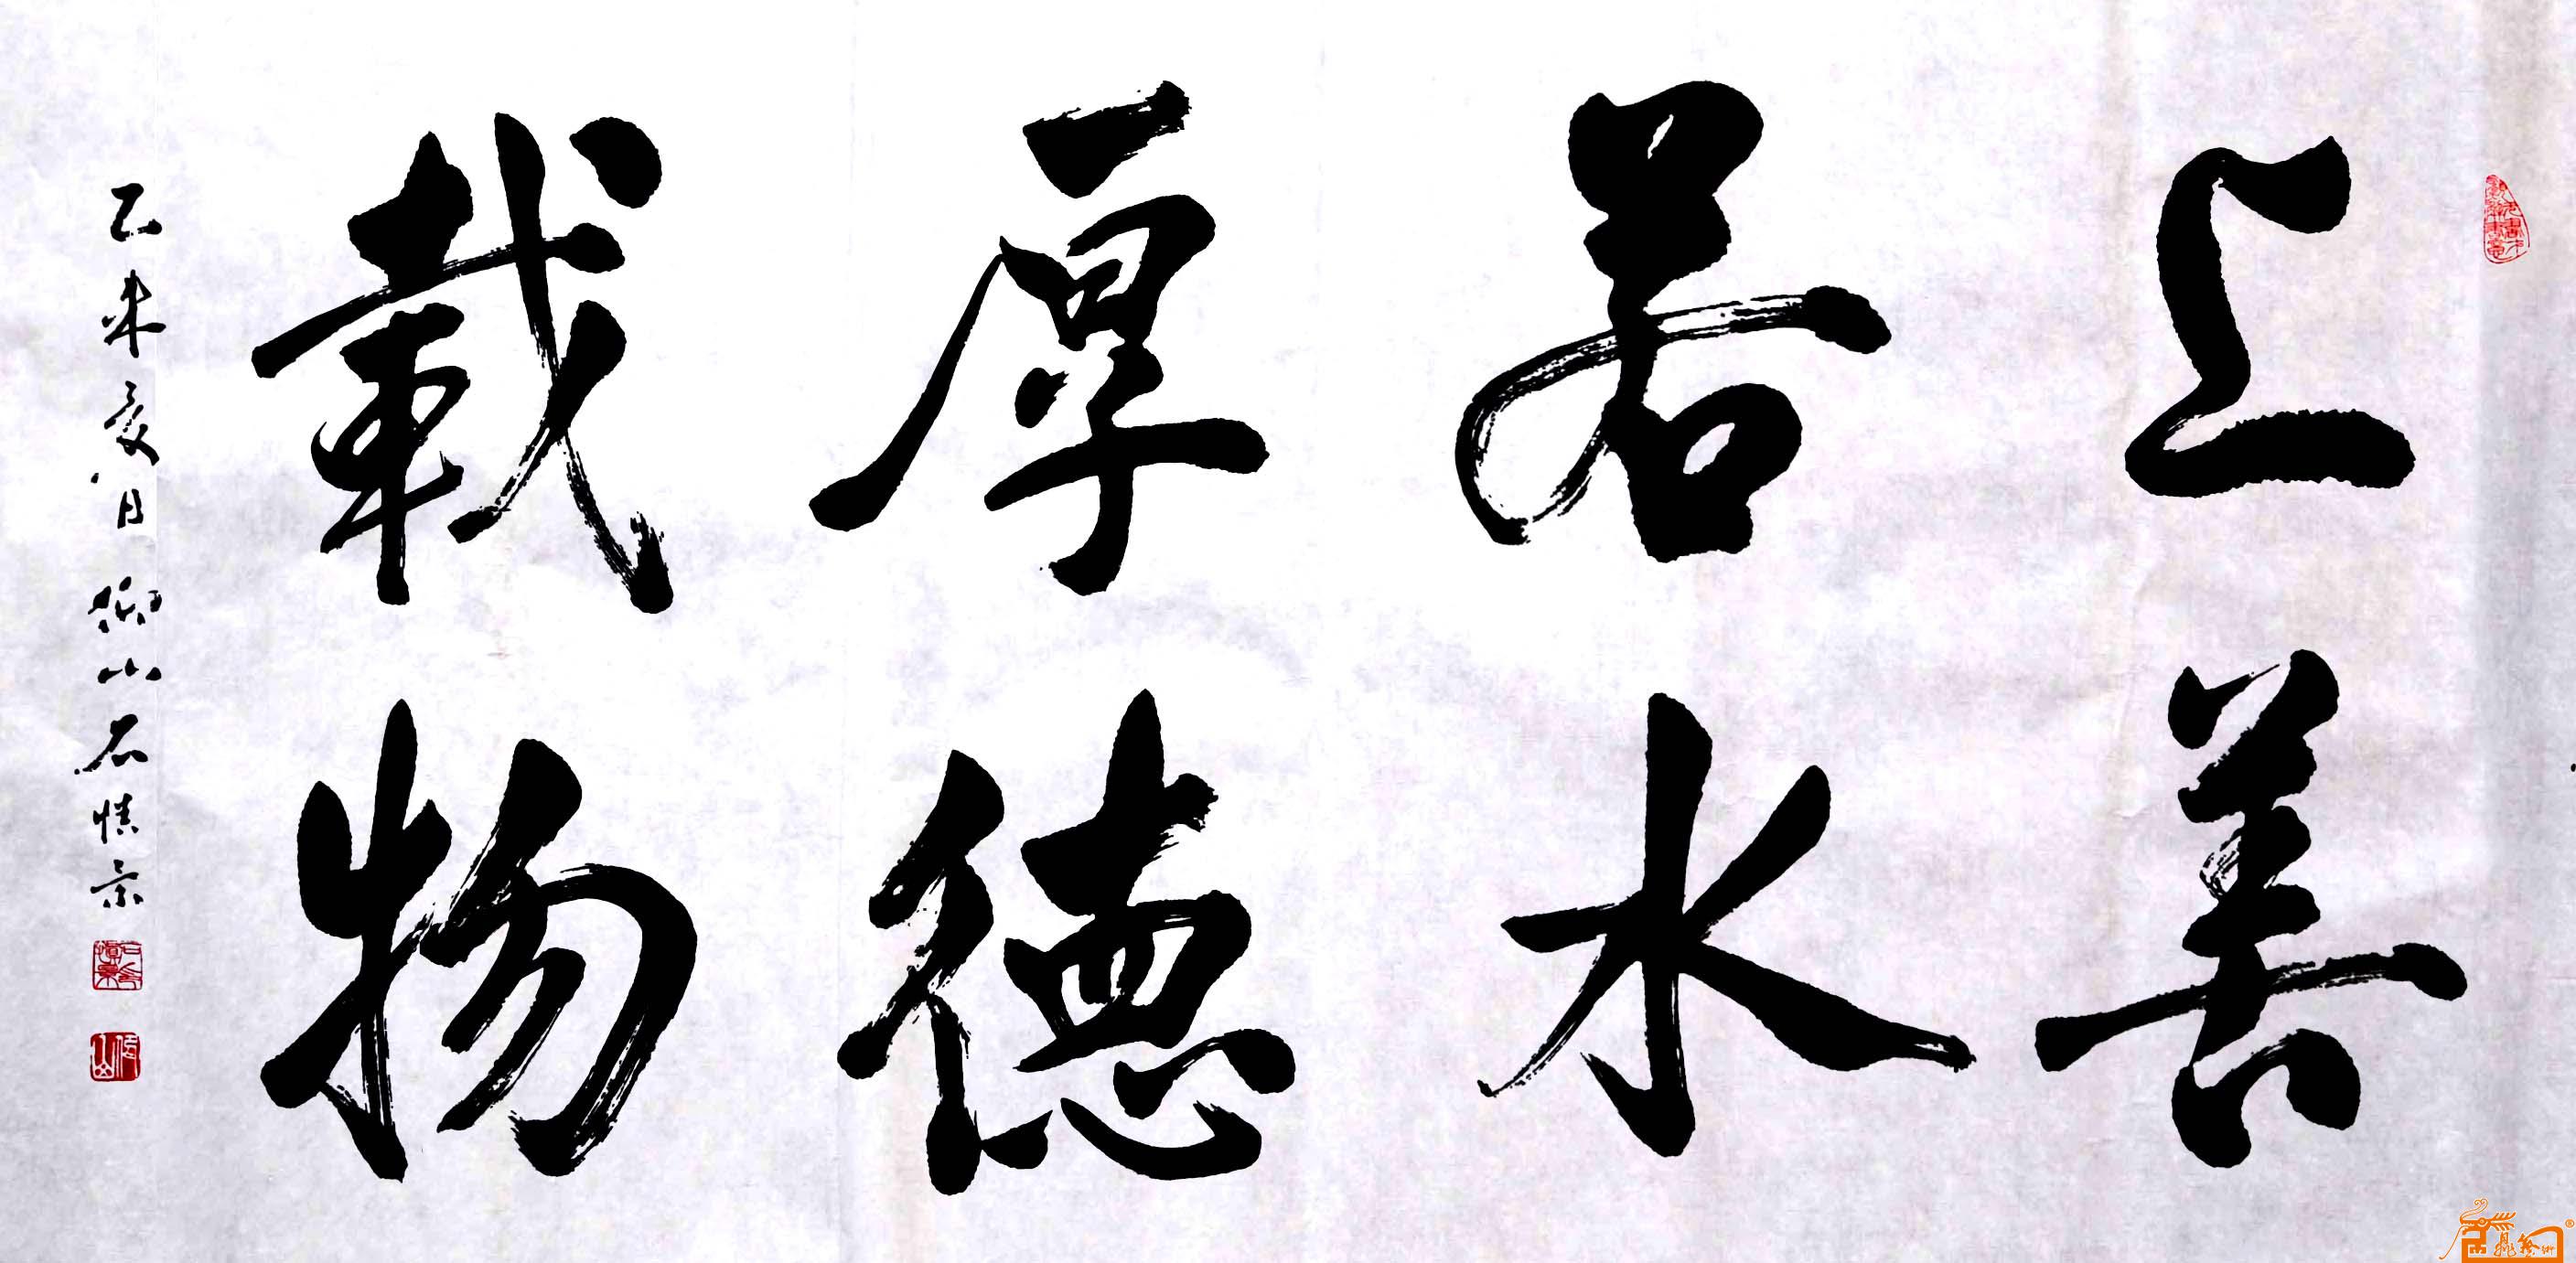 上善
若水
厚德
载物
乙未夏月仰山石慎景